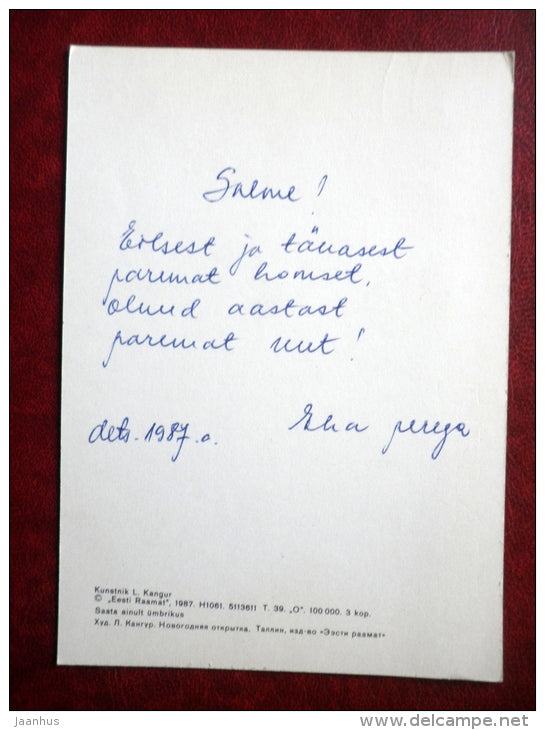 Salme!
Eilsest ja tänasest
paremat homset,
olnud aastast
paremat uut!
dets. 1987.a.
Elva perega
Kunstnik L. Kangur
© „Eesti Raamat", 1987. H1061. 5113611 T. 39. „O". 100 000. 3 kop.
Saata ainult ümbrikus
Худ. Л. Кангур. Новогодняя открытка. Таллин, изд-во «Ээсти раамат»
jaanhus
www.delcampe.net